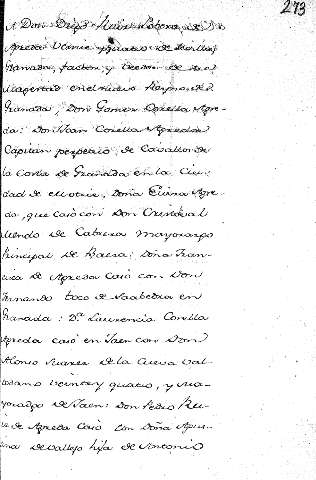 273
A Don Diego
Agreda Veinte y quatro de Sevilla
Granada, factor, y
Magestad en el nuevo Reyno de
Granada, Don Gomez Corella Agre-
da: Don Juan Corella Agreda
Capitan perpetuo de Cavallos de
la Costa de Granada en la Ciu-
dad de Motril, Doña Elvira Agre-
da, que casò con Don Christoval
de Cabrera Mayorazgo
Principal de Baeza: Doña Fran-
cisca de Agreda casò con Don
Fernando de Saabedra en
Granada: Dª Laurencia Corella
Agreda casò en Jaen con Don
Alonso Suarez de la Cueva Val-
veinte y quatro, y Ma-
yorazgo de Jaen: Don Pedro Rui-
z de Agreda Casò con Doña Agus-
tina de Vallejo hija de Antonio